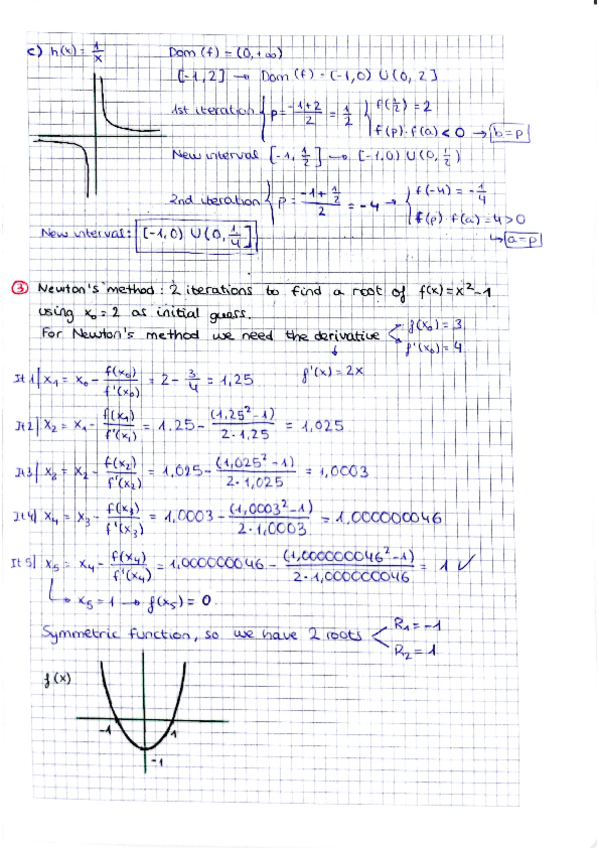 c) h(x) = 1/x Dom (f) = (0, +∞)
[-1,2] → Dom (f) = (-1,0) U (0, 2]
1st iteration { p = (-1+2)/2 = 1/2 { f(1/2) = 2
f(p)·f(a) < 0 → b=p
New interval [-1, 1/2] → [-1,0) U (0, 1/2)
2nd iteration { p = (-1+1/2)/2 = -4 → { f(-4) = -1/4
f(p)·f(a) = 4 > 0
↳ a=p
New interval: [-1,0) U (0, 1/4]
③ Newton's method: 2 iterations to find a root of f(x) = x²-1
using x₀ = 2 as initial guess.
For Newton's method we need the derivative f(x₀) = 3
f'(x₀) = 4
f'(x) = 2x
It 1| x₁ = x₀ - f(x₀)/f'(x₀) = 2 - 3/4 = 1,25
It 2| x₂ = x₁ - f(x₁)/f'(x₁) = 1.25 - (1,25²-1)/(2·1,25) = 1,025
It 3| x₃ = x₂ - f(x₂)/f'(x₂) = 1,025 - (1,025²-1)/(2·1,025) = 1,0003
It 4| x₄ = x₃ - f(x₃)/f'(x₃) = 1,0003 - (1,0003²-1)/(2·1,0003) = 1.000000046
It 5| x₅ = x₄ - f(x₄)/f'(x₄) = 1,000000046 - (1,000000046²-1)/(2·1,000000046) = 1 ✓
↳ x₅ = 1 → f(x₅) = 0
Symmetric function, so we have 2 roots R₁ = -1
R₂ = 1
f(x)
-1 1
-1